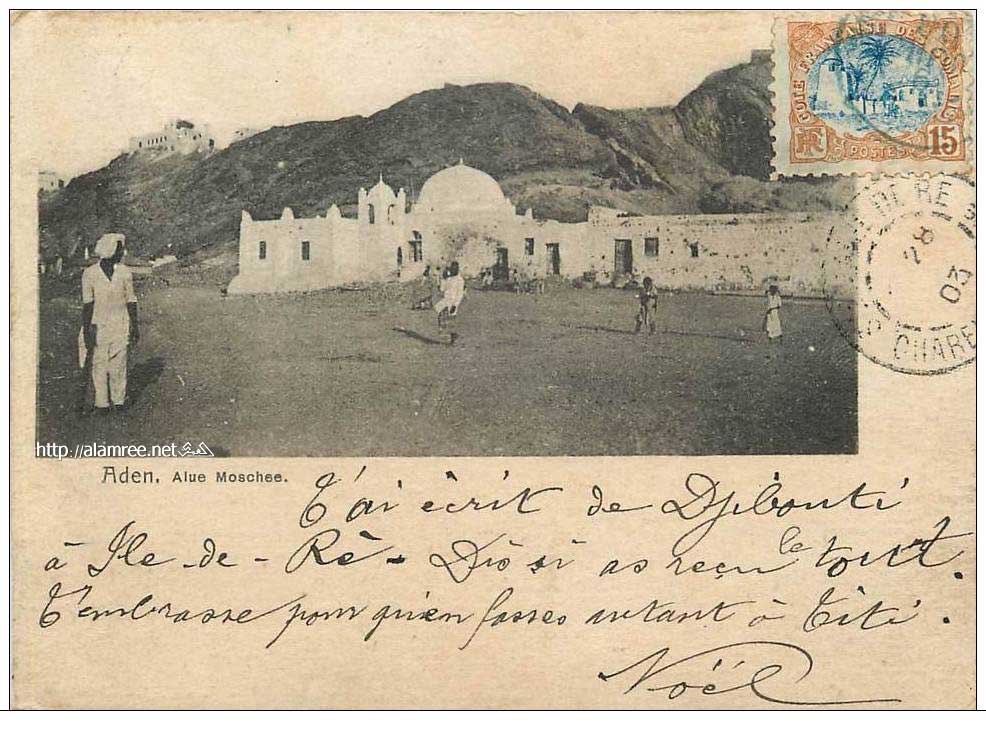 CÔTE FRANÇAISE DES SOMALIS
RF POSTES 15
DE RE
28
03
CHARE
http://alamree.net
Aden. Alue Moschee.
T'ai écrit de Djibouti
à Ile-de-Ré- Dis si as reçu le tout.
T'embrasse pour qu'en fasses autant à Titi.
Noël